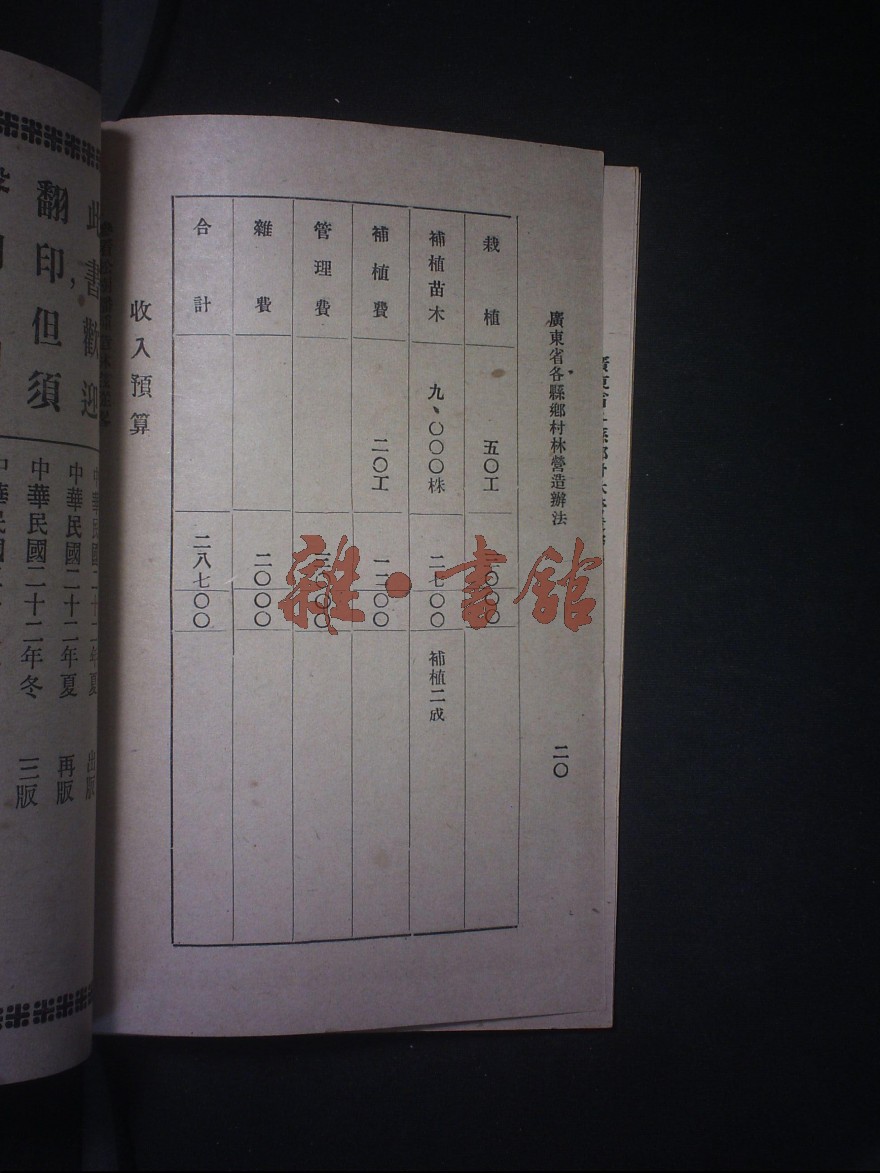 廣東省各縣鄉村林營造辦法
二〇
栽植 五〇工
補植苗木 九、〇〇〇株 二七〇〇 補植二成
補植費 二〇工 一二〇〇
管理費
雜費 二〇〇〇
合計 二八七〇〇
收入預算
雜·書館
此書歡迎
翻印,但須
中華民國二十二年夏 出版
中華民國二十二年夏 再版
中華民國二十二年冬 三版